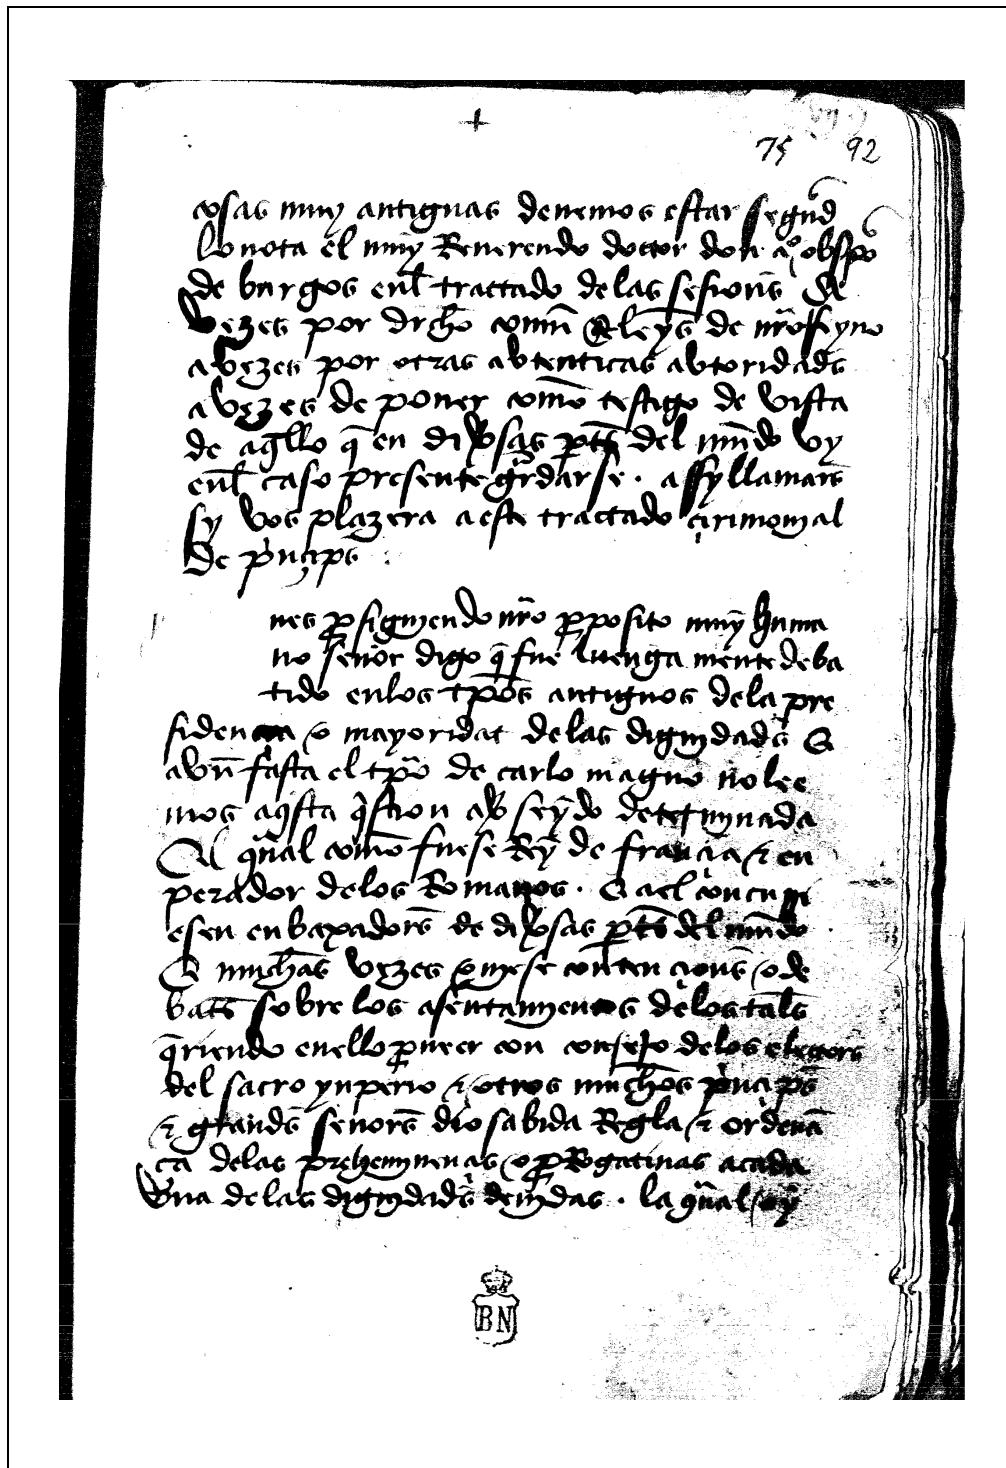 +
75 92
cosas muy antiguas deuemos estar segũd
lo nota el muỹ Reuerendo doctor don a.º obispo
de burgos enl tractado delas sesionẽs &
vezes por drch̃o comũ & leyẽs de nr̃o Reyno
a vezes por otras abtenticas abtoridadẽs
a vezes de poner com̃o testigo de vista
de aq̃llo q̃ en diu̾sas ptẽs del mũdo vy
enl caso presente gr̃darse . assy llamarẽs
sy vos plazera aeste tractado çirimonial
de p̾nçipẽs :
ues p̱siguiendo nr̃o p̱posito muỹ huma
no señor digo q̃ fue luenga mente deba
tido enlos tp̃os antiguos dela pre
sidençia o mayoridat delas dignidadẽs &
avñ fasta el tp̃o de carlo magno no lee
mos aq̃sta q̃stion av̾ seỹdo determinada
El q̃ual com̃o fuese Reỹ de françia & en
perador delos Romanos . & a el concurri
esen enbaxadorẽs de diu̾sas ptẽs del mũdo
E much̃as vezes ouiese contençionẽs o de
batẽs sobre los asentamientos delos talẽs
q̃riendo enello p̱ueer con consejo delos electorẽs
del sacro ynperio & otros much̃os p̾nçipẽs
& grandẽs señorẽs dio sabida Regla & ordenã
ça delas prehemynençias o p̱Rogatiuas acada
vna delas dignidadẽs deuidas . la q̃ual oỹ
BN